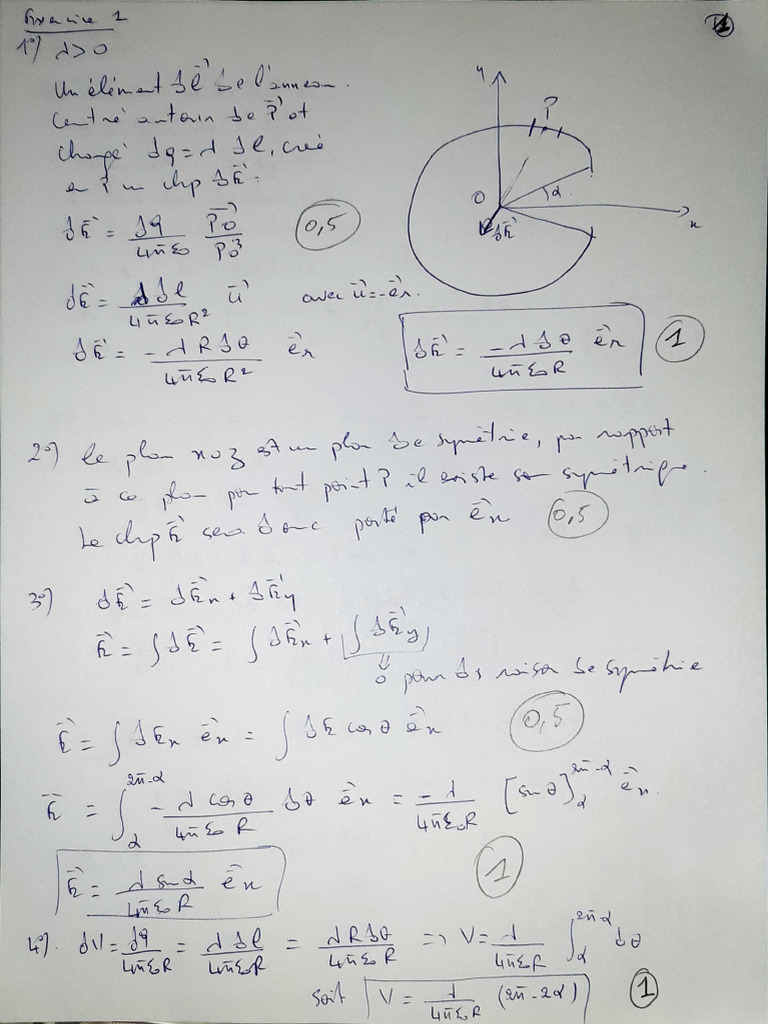 Exercice 1
1°) λ>0
Un élément dl⃗ de l'anneau
centré autour de P et
chargé dq = λ dl, crée
en un chp dE⃗ :
dE⃗ = dq/4πε₀ PO⃗/PO³ 0,5
dE⃗ = λdl/4πε₀R² u⃗ avec u⃗=-e⃗r.
dE⃗ = -λRdθ/4πε₀R² e⃗r
dE⃗ = -λdθ/4πε₀R e⃗r 1
y
P
α
O
dE⃗
x
2°) Le plan xoz est un plan de symétrie, par rapport
à ce plan pour tout point P il existe son symétrique.
Le chp E⃗ sera donc porté par e⃗x 0,5
3°) dE⃗ = dE⃗x + dE⃗y
E⃗ = ∫dE⃗ = ∫dE⃗x + ∫dE⃗y
⇓
0⃗ pour ds raison de symétrie
E⃗ = ∫dEx e⃗x = ∫dE cosθ e⃗x 0,5
E⃗ = ∫_α^{2π-α} -λcosθ/4πε₀R dθ e⃗x = -λ/4πε₀R [sinθ]_α^{2π-α} e⃗x.
E⃗ = λ sinα/4πε₀R e⃗x 1
4°). dV = dq/4πε₀R = λdl/4πε₀R = λRdθ/4πε₀R => V = λ/4πε₀R ∫_α^{2π-α} dθ
soit V = λ/4πε₀R (2π-2α) 1